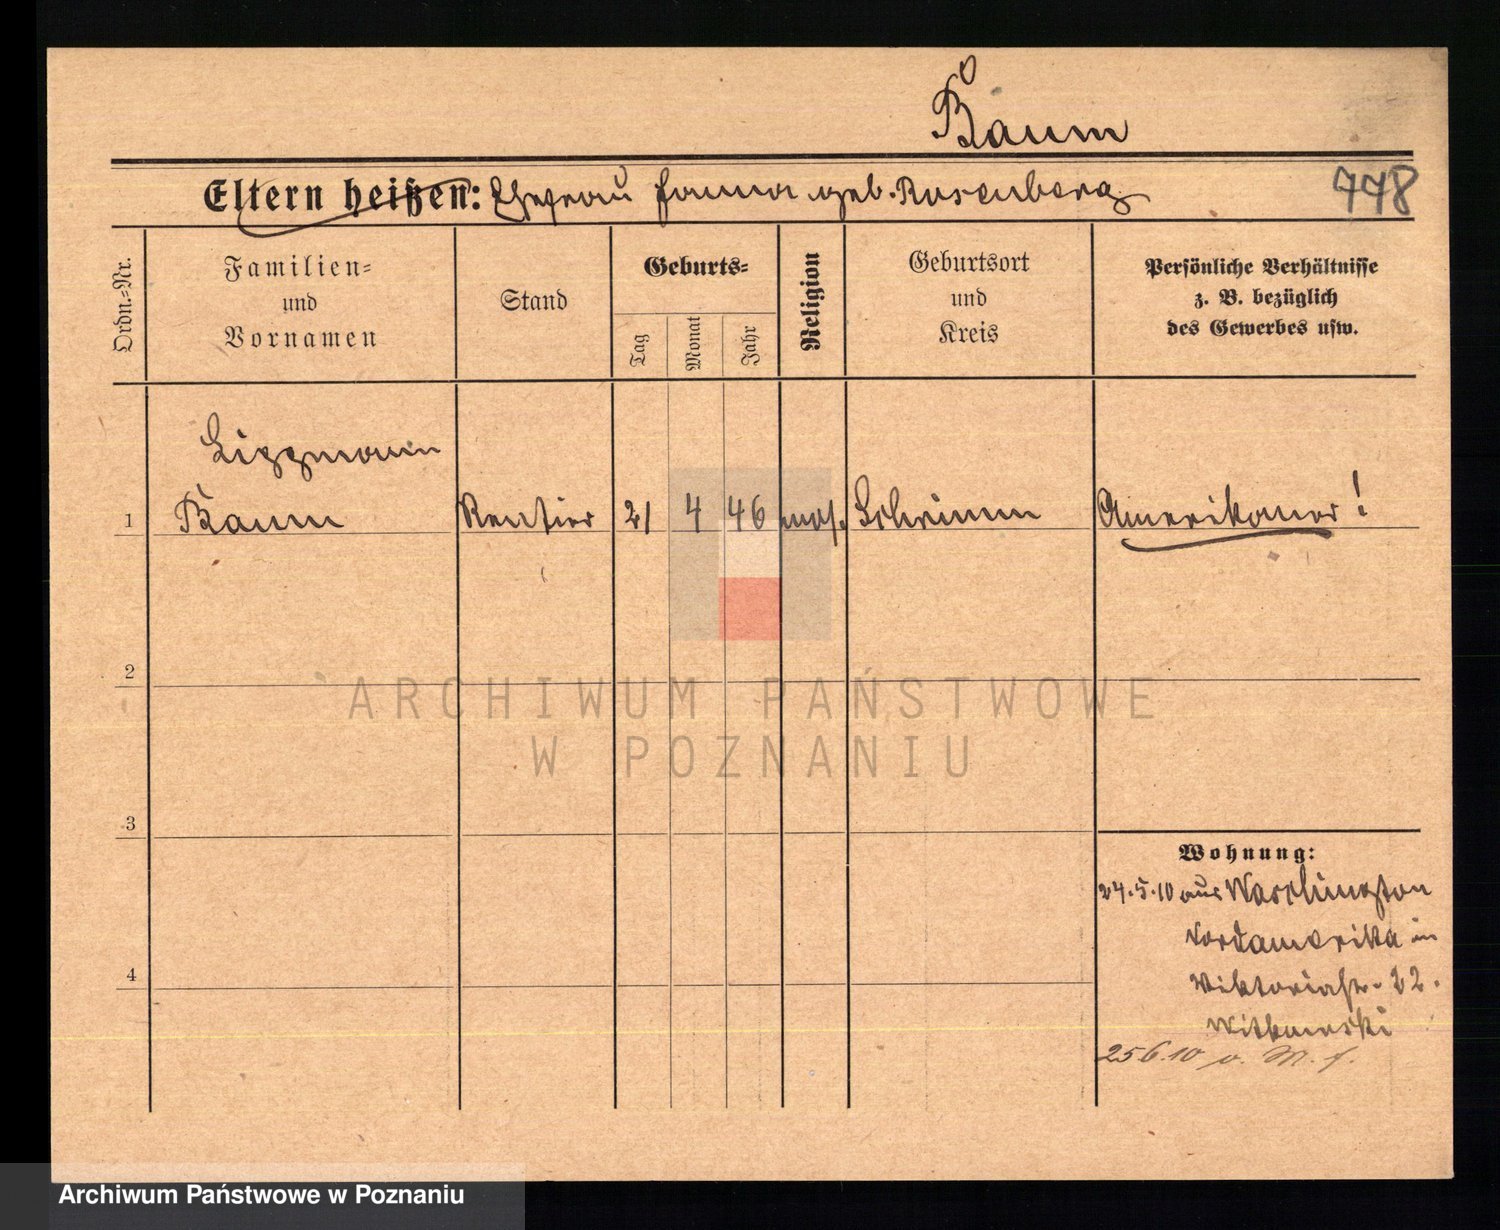 Baum
Eltern heißen: Ehefrau Fanna geb. Rosenberg
778
Ordn.-Nr.
Familien-
und
Vornamen
Stand
Geburts-
Tag
Monat
Jahr
Religion
Geburtsort
und
Kreis
Persönliche Verhältnisse
z. B. bezüglich
des Gewerbes usw.
Lippmann
1 Baum Rentier 21 4 46 mos. Schrimm Amerikaner!
2
3
Wohnung:
24.5.10 aus Waschington
Nordamerika in
4
Viktoriastr. 22.
Witkowski
25.6.10 v. M. f.
ARCHIWUM PAŃSTWOWE
W POZNANIU
Archiwum Państwowe w Poznaniu